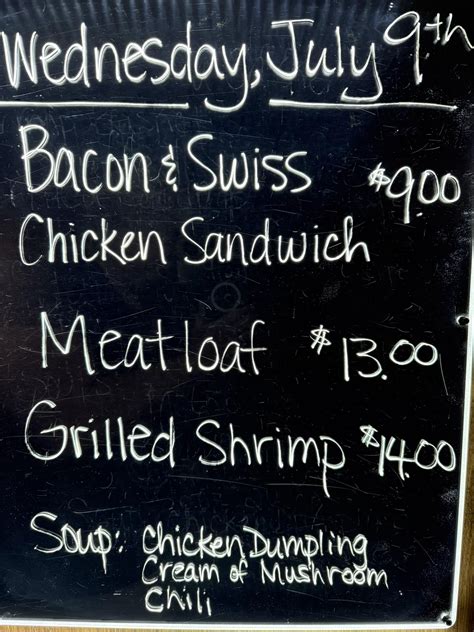 Wednesday, July 9th
Bacon & Swiss $9.00
Chicken Sandwich
Meatloaf $13.00
Grilled Shrimp $14.00
Soup: Chicken Dumpling
Cream of Mushroom
Chili